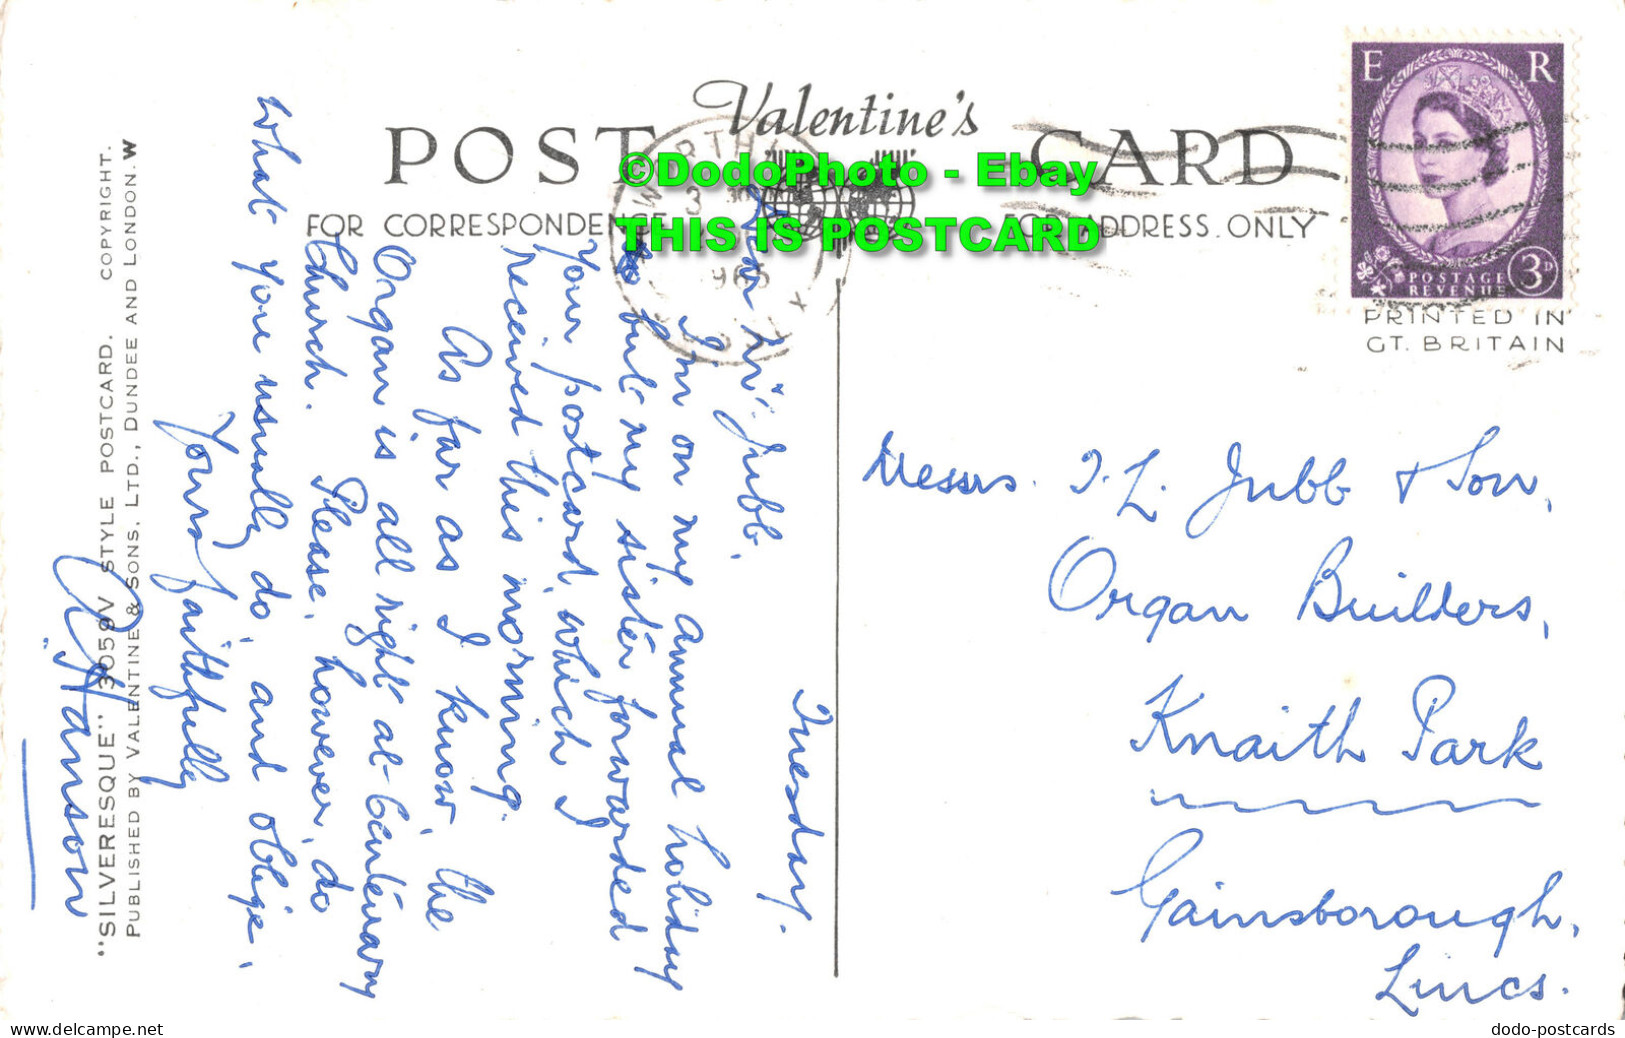 Valentine's
POST CARD
FOR CORRESPONDENCE
FOR ADDRESS ONLY
©DodoPhoto - Ebay
THIS IS POSTCARD
3
1965
E R
POSTAGE
REVENUE
3D
PRINTED IN
GT. BRITAIN
Tuesday.
Dear Mr. Jubb,
I'm on my annual holiday
but my sister forwarded
your postcard, which I
received this morning.
As far as I know, the
Organ is all right at Centenary
Church. Please, however, do
what you usually do, and oblige,
Yours faithfully
A. Hanson
Messrs. T. L. Jubb & Son,
Organ Builders,
Knaith Park
Gainsborough,
Lincs.
"SILVERESQUE" 3059V STYLE POSTCARD. COPYRIGHT.
PUBLISHED BY VALENTINE & SONS. LTD., DUNDEE AND LONDON. W
www.delcampe.net
dodo-postcards